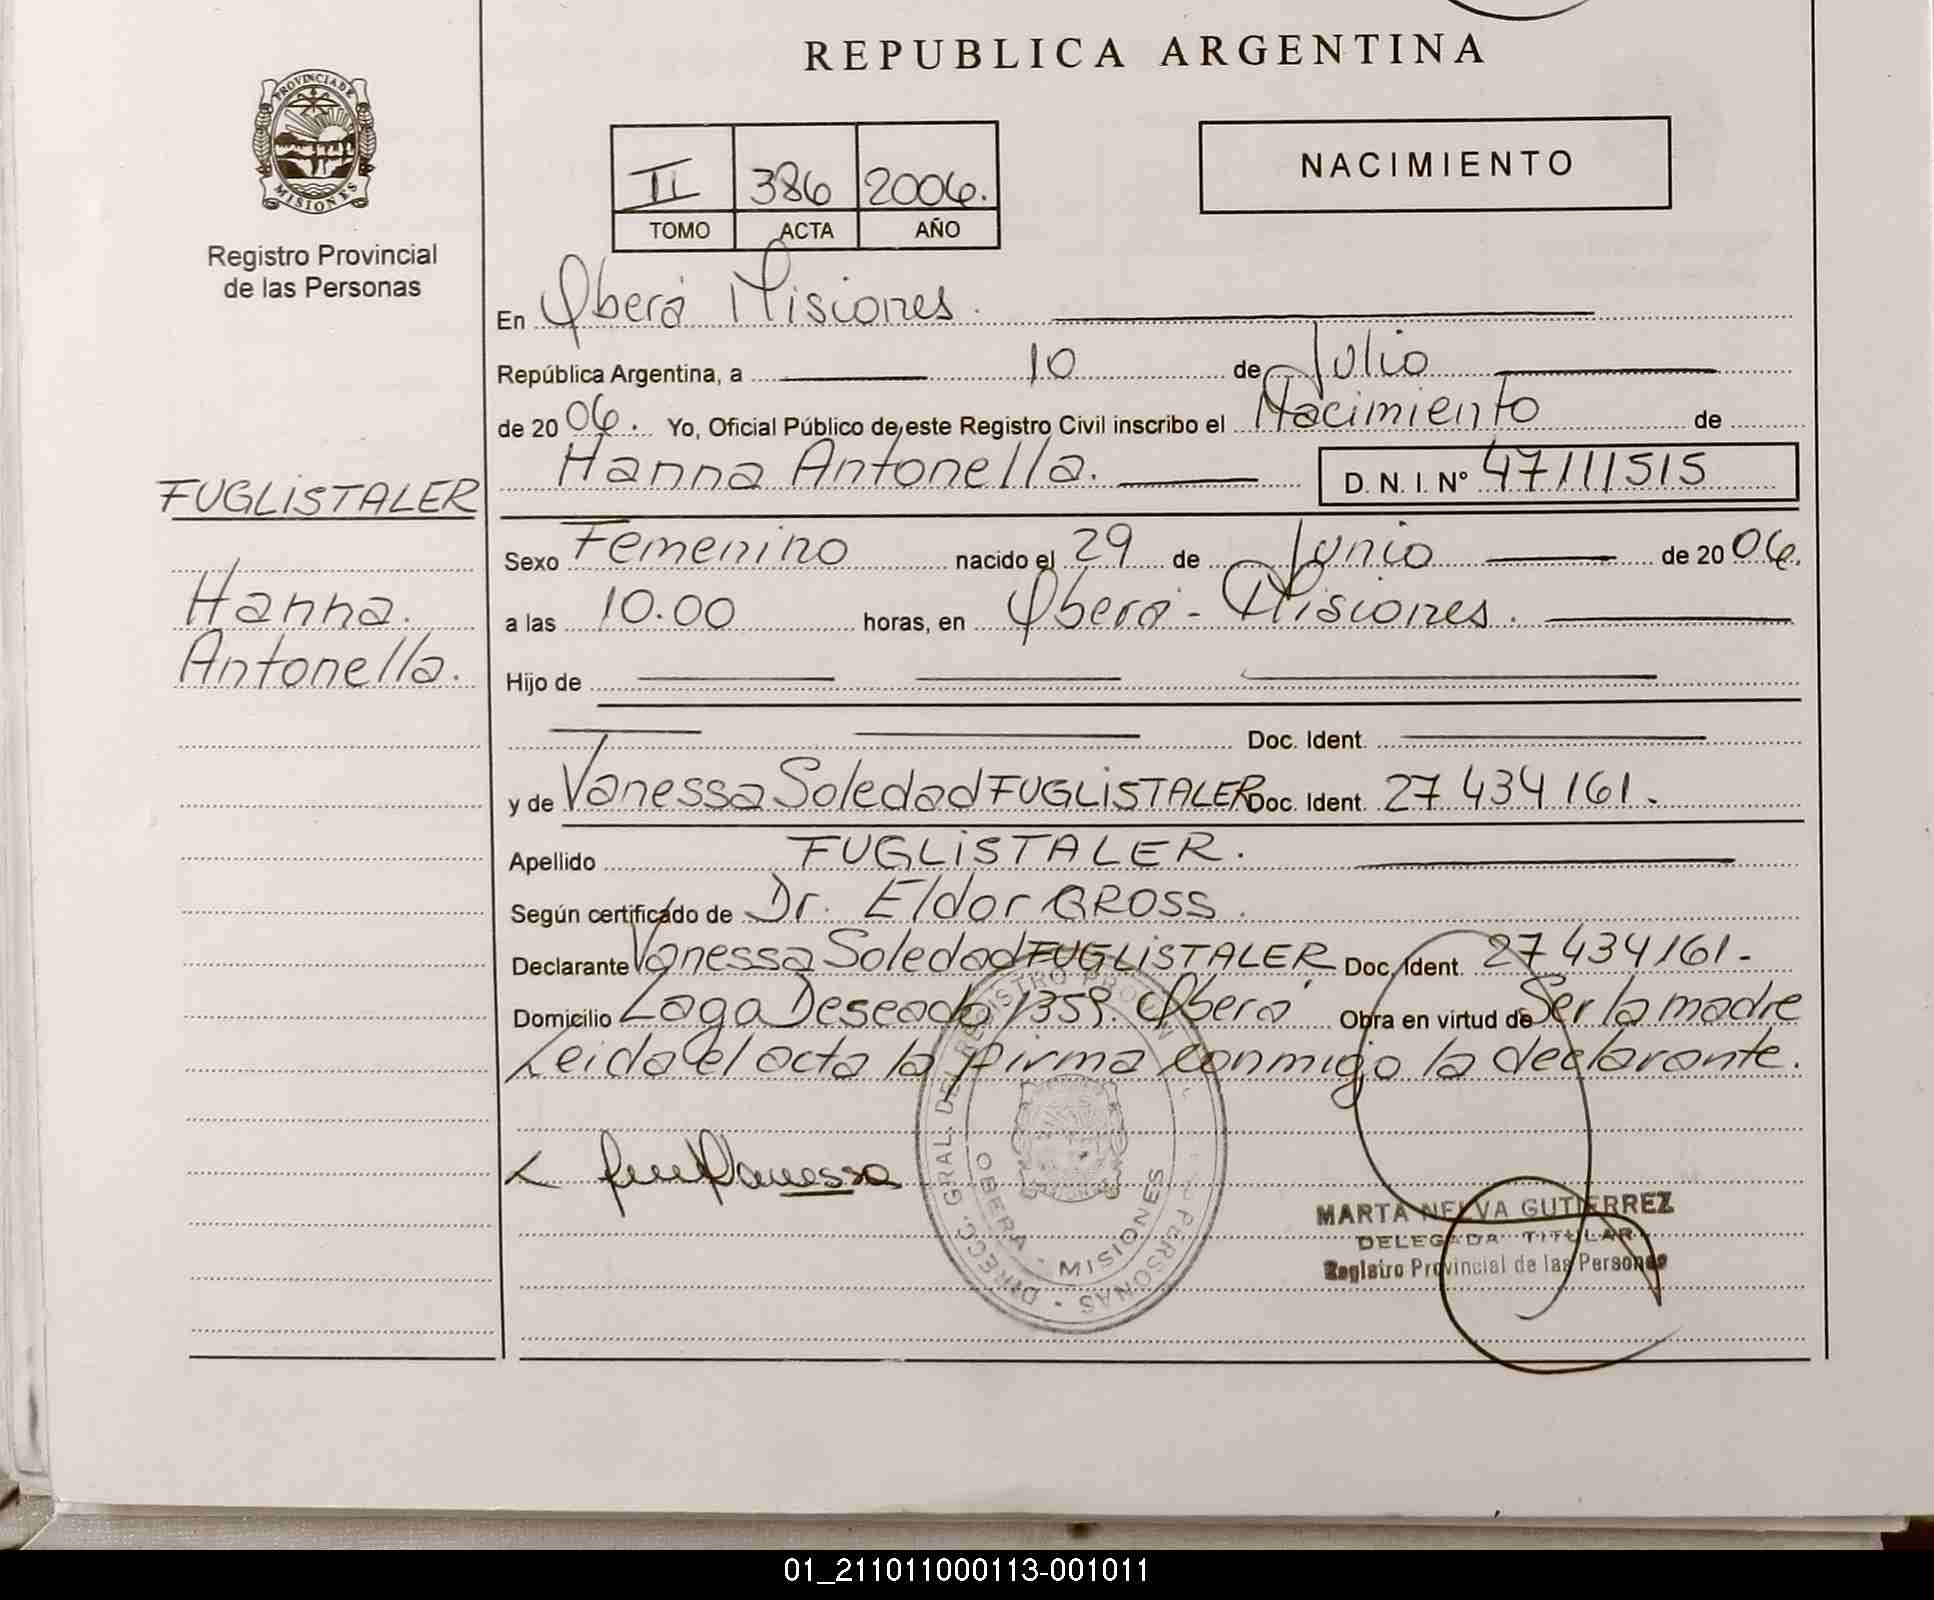 REPUBLICA ARGENTINA
PROVINCIA DE MISIONES
Registro Provincial
de las Personas
II 386 2006.
TOMO ACTA AÑO
NACIMIENTO
En Oberá Misiones.
República Argentina, a 10 de Julio
de 2006. Yo, Oficial Público de este Registro Civil inscribo el Nacimiento de
Hanna Antonella. D. N. I. Nº 47111515
FUGLiSTALER
Hanna.
Antonella.
Sexo Femenino nacido el 29 de Junio de 2006.
a las 10.00 horas, en Oberá - Misiones.
Hijo de
Doc. Ident.
y de Vanessa Soledad FUGLiSTALER Doc. Ident. 27 434 161.
Apellido FUGLiSTALER.
Según certificado de Dr. Eldor GROSS.
Declarante Vanessa Soledad FUGLiSTALER Doc. Ident. 27 434 161.-
Domicilio Lago Deseado 1359. Oberá Obra en virtud de Ser la madre
Leida el acta la firma conmigo la declarante.
Vanessa
DIRECC. GRAL. DEL REGISTRO PERSONAS
OBERA - MISIONES
MARTA NELVA GUTIERREZ
DELEGADA TITULAR
Registro Provincial de las Personas
01_211011000113-001011